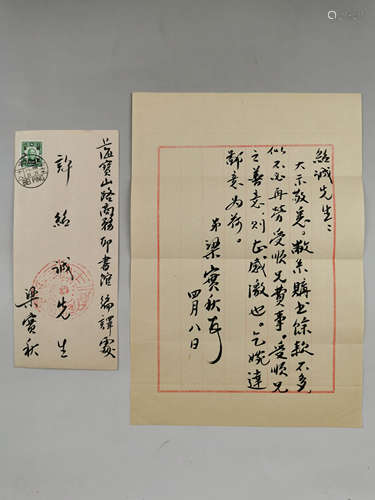 上海宝山路商務印書館編譯處
許紹誠先生
梁實秋
紹誠先生：
大示敬悉。敝系購書餘款不多
似不必再勞受順兄費事。受順兄
之善意，則甚感激也。乞婉達
鄙意為荷。
弟梁實秋頓
四月八日